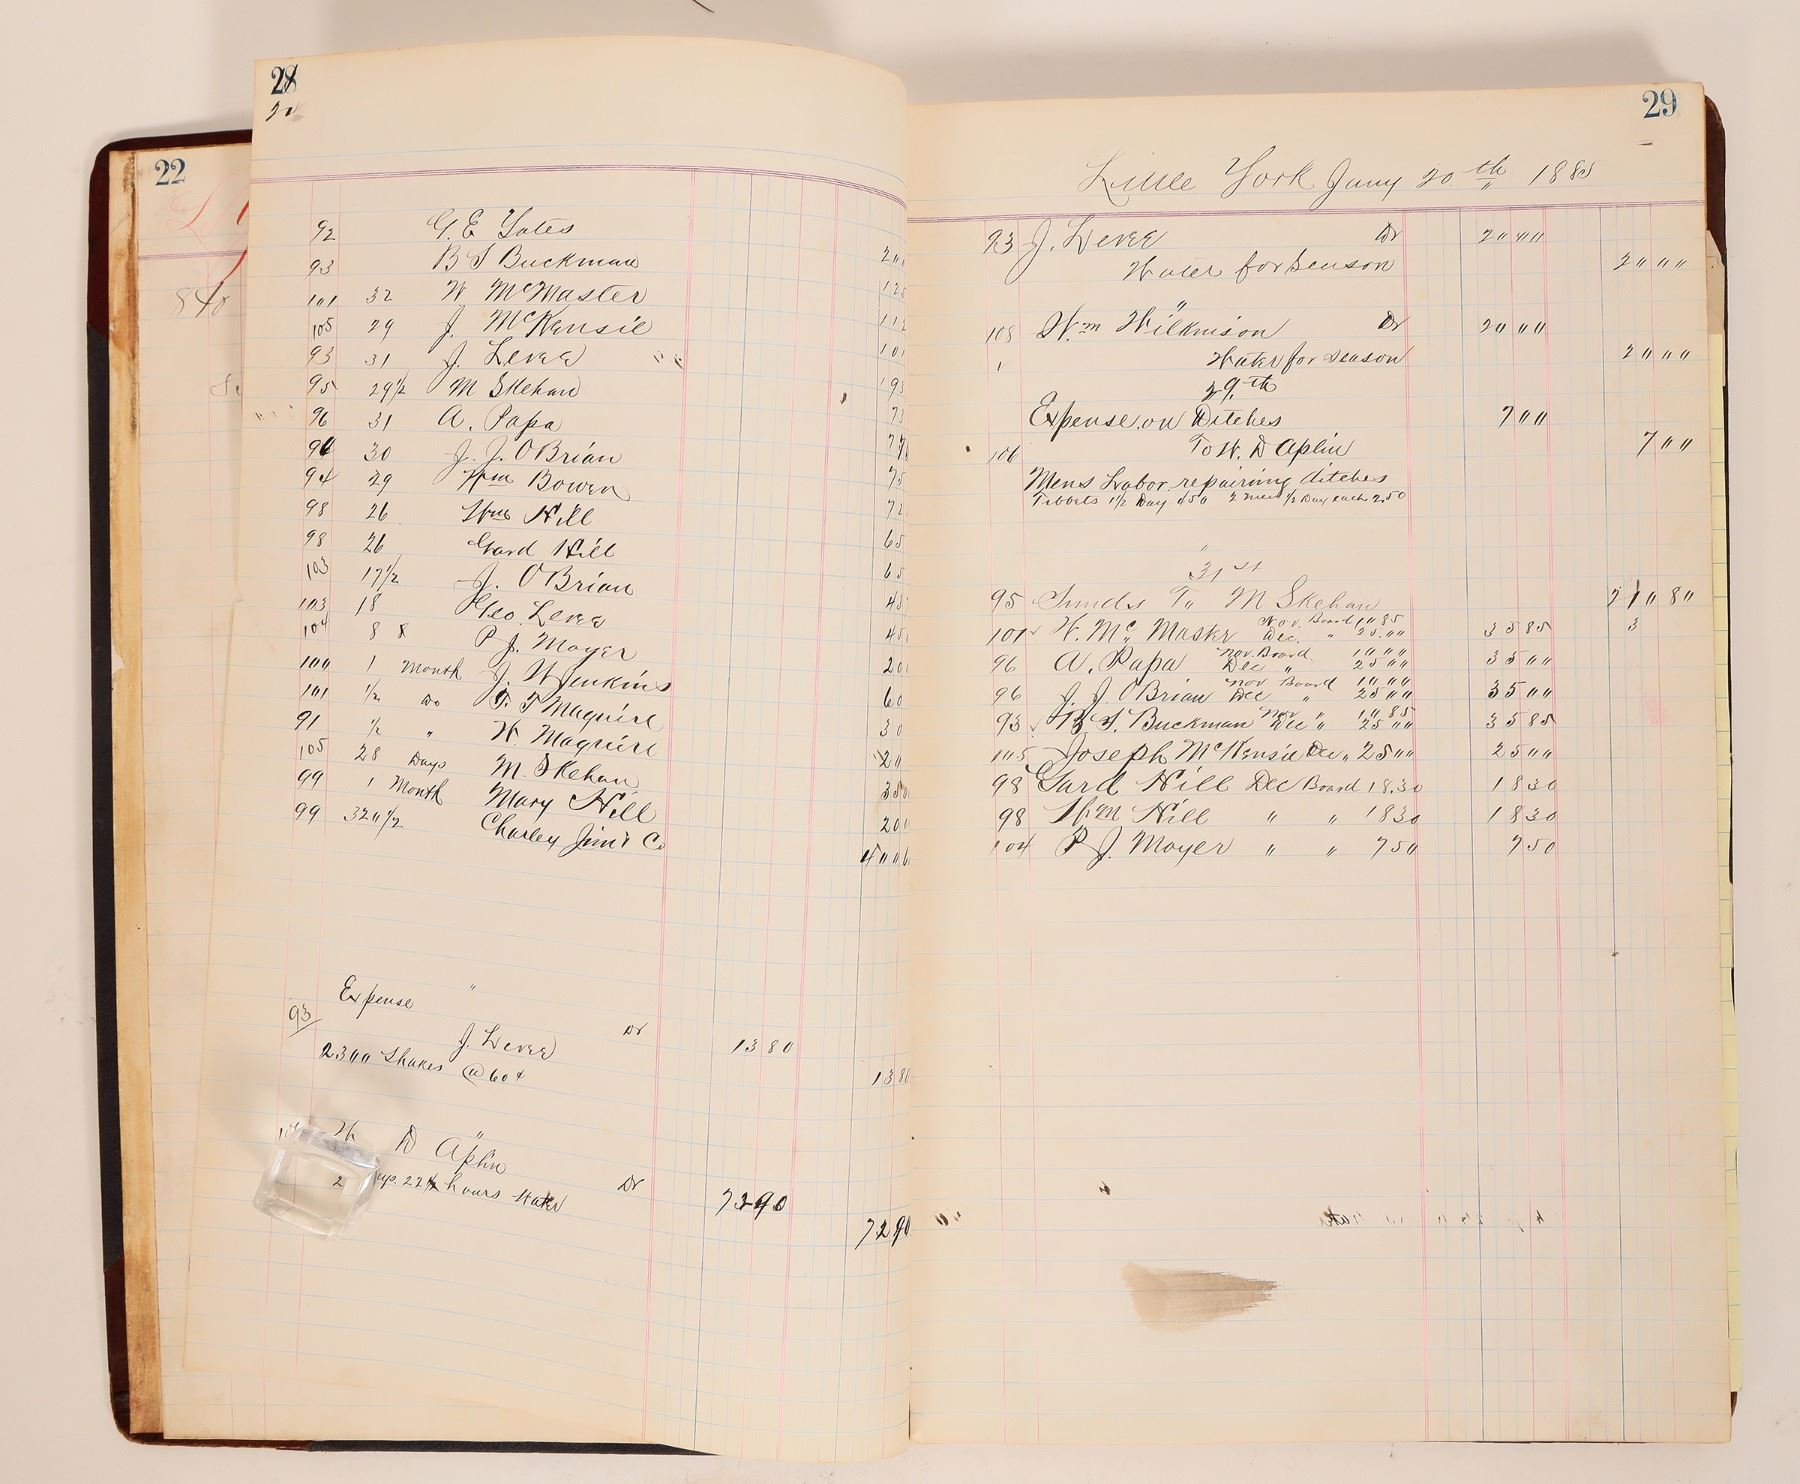 22
840
28
92 G. E. Yates
93 B S Buckman 20
101 32 W McMaster 125
105 29 J. McKensie 112
93 31 J. Levee " " 101
95 29 1/2 M Skehan 193
96 31 A. Papa 73
96 30 J. J. O Brian 77
94 29 Wm Bowen 75
98 26 Wm Hill 72
98 26 Gard Hill 65
103 17 1/2 J. O Brian 65
103 18 Geo. Levee 43
104 8 P J. Moyer 45
100 1 Month J. W Jenkins 20
101 1/2 Do F. F Maguire 60
91 1/2 " W. Maguire 30
105 28 Days M. Skehan 20
99 1 Month Mary Hill 350
99 320 1/2 Charley Jim & Co 200
4006
"
Expense Dr 1380
93 J. Levee 138
2300 Shakes @ 60¢
"
W D Aplin Dr 7390
2 22 1/2 hours Water 7290
29
Little York Jany 20th 1885
93 J. Levee Dr 20 00
Water for Season 20 00
"
108 Wm Wilkinson Dr 20 00
1 Water for Season 20 00
29th
Expense on Ditches 7 00
106 To W. D Aplin 7 00
Mens Labor repairing ditches
Tibbets 1 1/2 Day 4 50 2 men 1/2 Day each 2.50
"
31st
95 Sunds To M Skehan 210 80
101 W. Mc Master Nov. Board 10 85 Dec. " 25 00 35 85
96 A. Papa Nov. Board 10 00 Dec " 25 00 35 00
96 J. J. O Brian Nov Board 10 00 Dec " 25 00 35 00
93 B. S. Buckman Nov " 10 85 Dec " 25 00 35 85
105 Joseph McKensie Dec " 25 00 25 00
98 Gard Hill Dec Board 18.30 18 30
98 Wm Hill " " 18 30 18 30
104 P J. Moyer " " 7 50 7 50